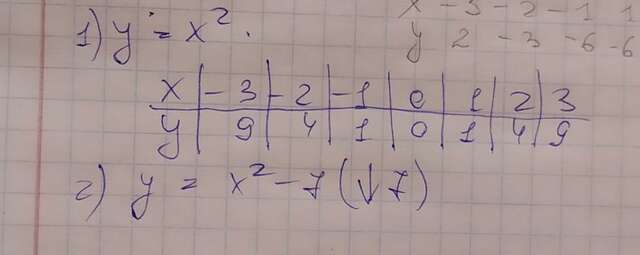 x -3 -2 -1 1
1) y = x².
y 2 -3 -6 -6
x | -3 | -2 | -1 | 0 | 1 | 2 | 3
y | 9 | 4 | 1 | 0 | 1 | 4 | 9
2) y = x² - 7 (↓7)